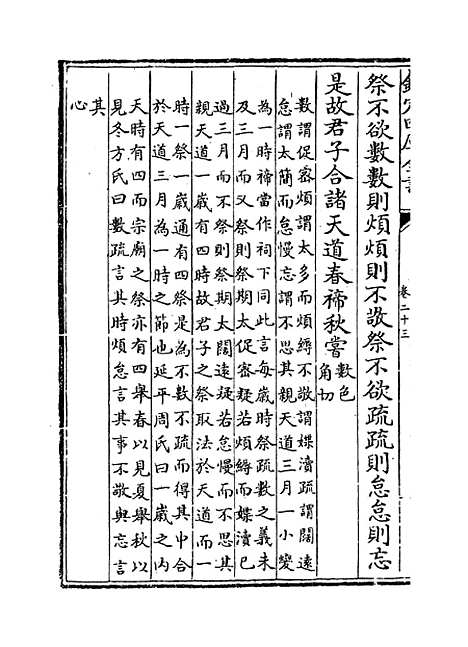 欽定四庫全書
卷二十三
祭不欲數數則煩煩則不敬祭不欲疏疏則怠怠則忘
是故君子合諸天道春禘秋嘗數色角切
數謂促密煩謂太多而煩縟不敬謂媟瀆疏謂闊遠
怠謂太簡而怠慢忘謂不思其親天道三月一小變
為一時禘當作祠下同此言每歲時祭疏數之義未
及三月而又祭則祭期太促密疑若煩縟而媟瀆已
過三月而不祭則祭期太闊遠疑若怠慢而不思其
親天道一歲有四時故君子之祭取法於天道而一
時一祭一歲通有四祭是為不數不疏而得其中合
於天道三月為一時之節也延平周氏曰一歲之内
天時有四而宗廟之祭亦有四舉春以見夏舉秋以
見冬方氏曰數疏言其時煩怠言其事不敬與忘言
其
心